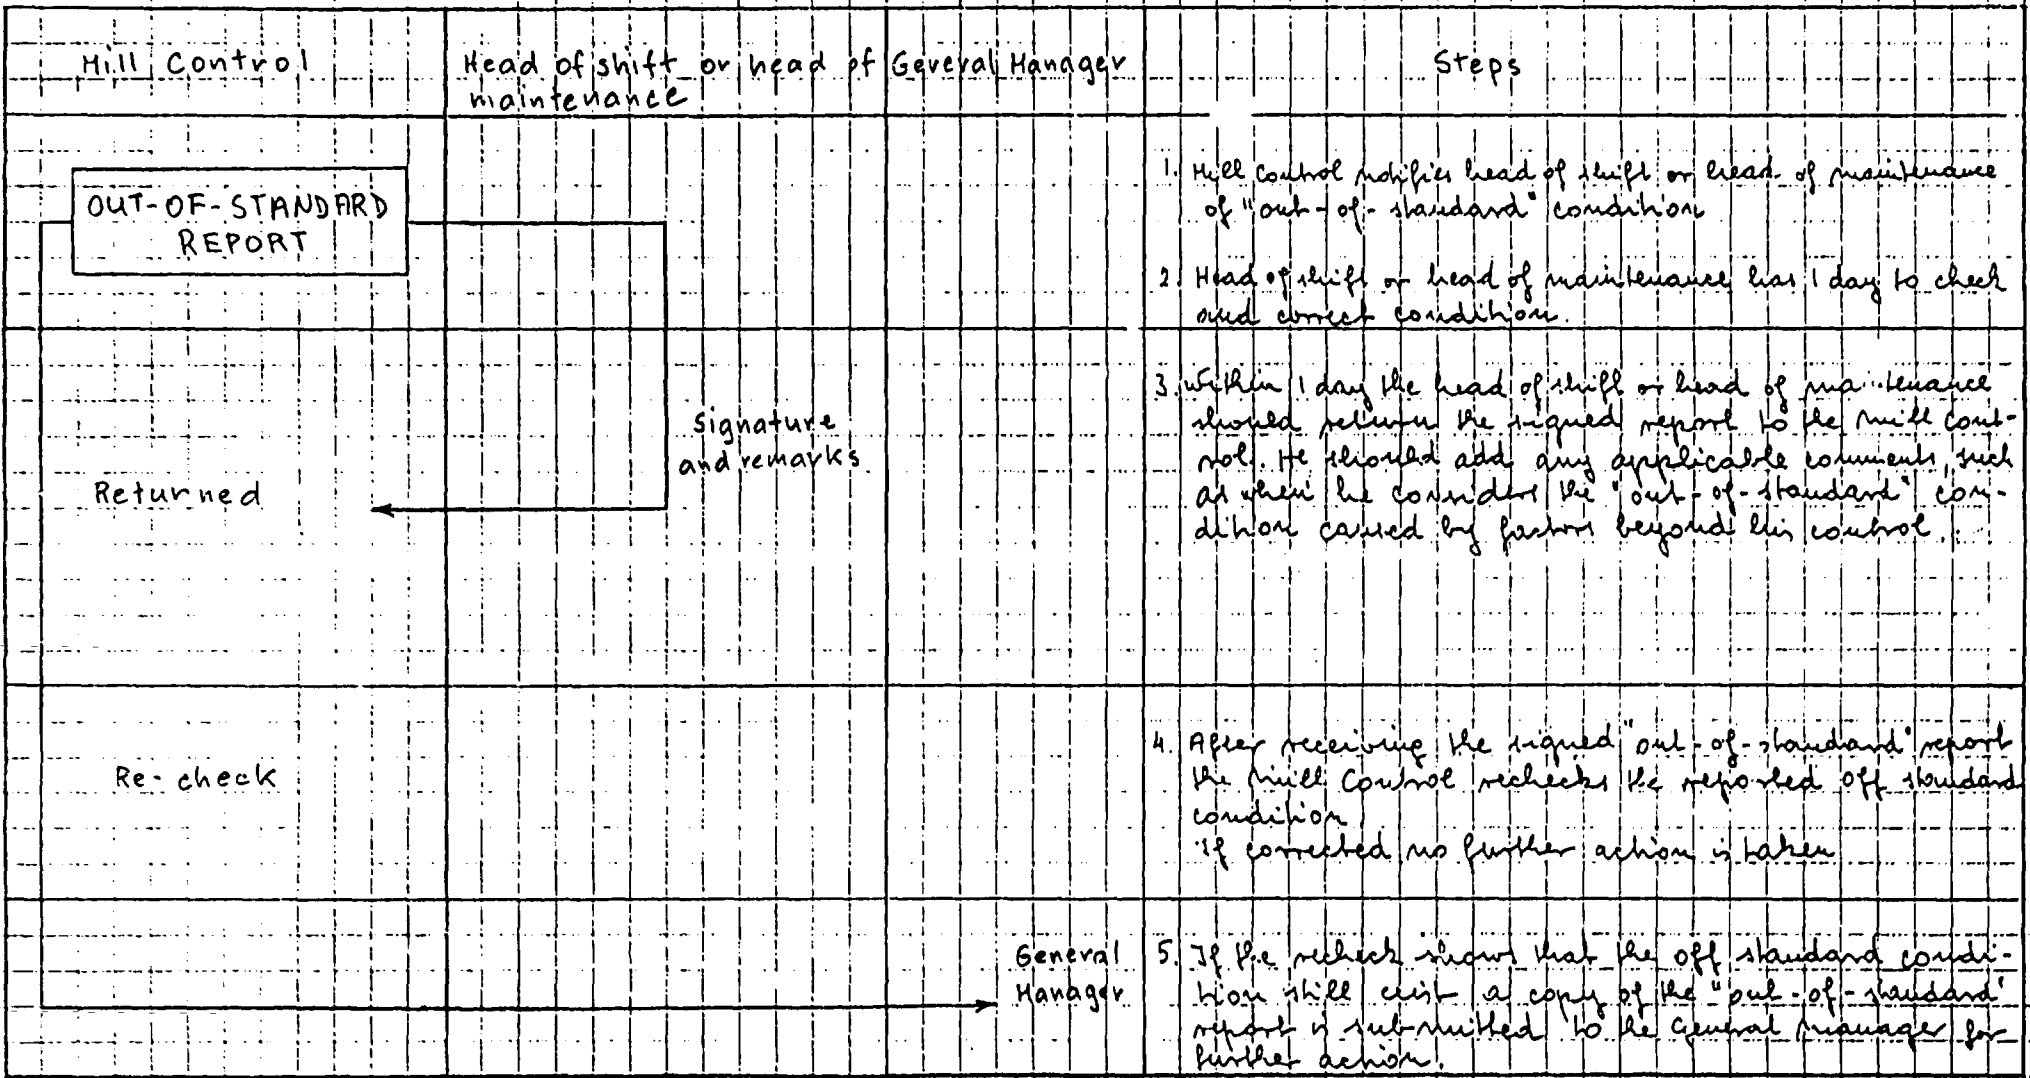 Mill Control
Head of shift or head of
maintenance
General Manager
Steps
OUT-OF-STANDARD
REPORT
1. Mill Control notifies head of shift or head of maintenance
of "out-of-standard" condition
2. Head of shift or head of maintenance has 1 day to check
and correct condition.
Signature
and remarks
Returned
3. Within 1 day the head of shift or head of ma tenance
should return the signed report to the mill cont-
rol. He should add any applicable comments, such
as when he considers the "out-of-standard" con-
dition caused by factors beyond his control.
Re-check
4. After receiving the signed "out-of-standard" report
the Mill Control rechecks the reported off standard
condition
If corrected no further action is taken
General
Manager
5. If the recheck shows that the off standard condi-
tion still exist a copy of the "out-of-standard"
report is submitted to the General manager for
further action.